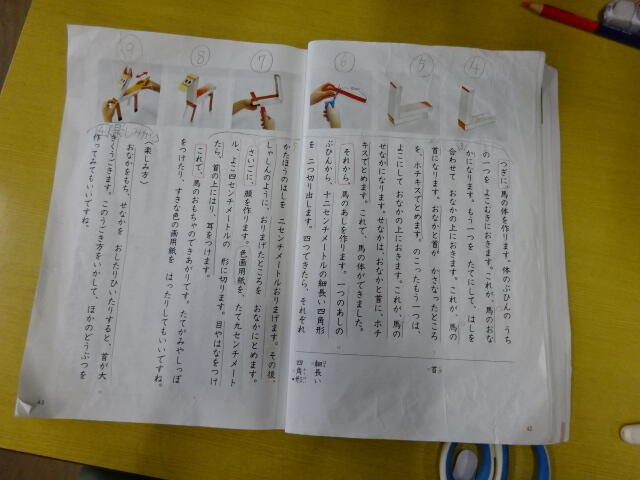 ④
⑤
⑥
つぎに、馬の体を作ります。体のぶひんの うち
の一つを よこむきにおきます。これが、馬のおな
かになります。もう一つを たてにして、はしを
合わせて おなかの上におきます。これが、馬の
首になります。おなかと首が かさなったところ
を、ホチキスでとめます。のこったもう一つは、
よこにして おなかの上におきます。これが、馬の
せなかになります。せなかは、おなかと首に、ホチ
キスでとめます。これで、馬の体ができました。
それから、馬のあしを作ります。一つのあしの
ぶひんから、十二センチメートルの細長い四角形
を 二つ切り出します。四つできたら、それぞれ
首
細長い
四角形
42
⑦
⑧
⑨
かたほうのはしを 二センチメートルおりまげます。その後、
しゃしんのように、おりまげたところを おなかにとめます。
さいごに、顔を作ります。色画用紙を、たて九センチメート
ル、よこ四センチメートルの 形に切ります。目やはなをつけ
たら、首の上にはり、耳をつけます。
これで、馬のおもちゃのできあがりです。たてがみやしっぽ
をつけたり、すきな色の画用紙を はったりしてもいいですね。
〈楽しみ方〉
おなかをもち、せなかを おしたりひいたりすると、首が大
きくうごきます。このうごき方をいかして、ほかのどうぶつを
作ってみてもいいですね。
43